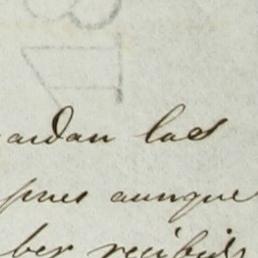 18
ardan las
pues aunque
ber recibid